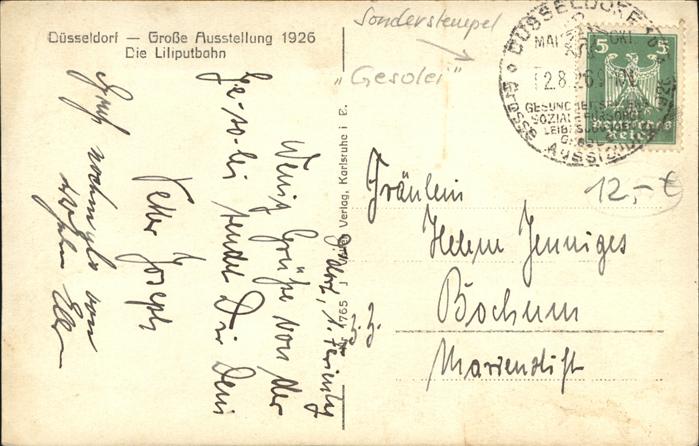 Düsseldorf — Große Ausstellung 1926
Die Liliputbahn
Sonderstempel
„Gesolei“
DÜSSELDORF
MAI OKT.
12.8.26.9
GESUNDHEITSPFLEGE
SOZIALE FÜRSORGE
LEIBESÜBUNGEN
GROSSE AUSSTELLUNG
1926
5 5
Deutsches
Reich
12,- €
765 J. Verlag, Karlsruhe i. B.
1. Ferientag
Wenig Grüße von der
Ge-so-lei sendet Dir Dein
Vetter Joseph
Gruß nochmals von
Fräulein
Helene Jenniges
z. Z.
Bochum
Marienstift